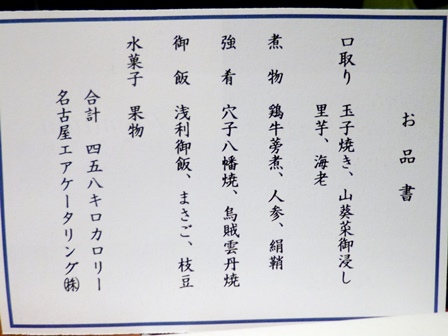 お品書
口取り 玉子焼き、山葵菜御浸し
里芋、海老
煮物 鶏牛蒡煮、人参、絹鞘
強肴 穴子八幡焼、烏賊雲丹焼
御飯 浅利御飯、まさご、枝豆
水菓子 果物
合計 四五八キロカロリー
名古屋エアケータリング㈱